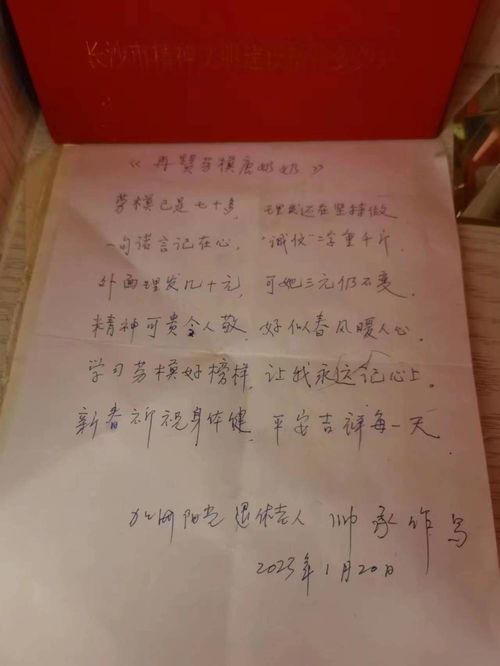 长沙市精神文明建设指导委员
《再赞劳模唐奶奶》
劳模已是七十多, 理发还在坚持做
一句诺言记在心, “诚悦”二字重千斤
外面理发几十元, 可她三元仍不变.
精神可贵令人敬, 好似春风暖人心.
学习劳模好榜样, 让我永远记心上.
新春祈祝身体健, 平安吉祥每一天
阳光 退休老人 帅承作 写
2023年1月20日